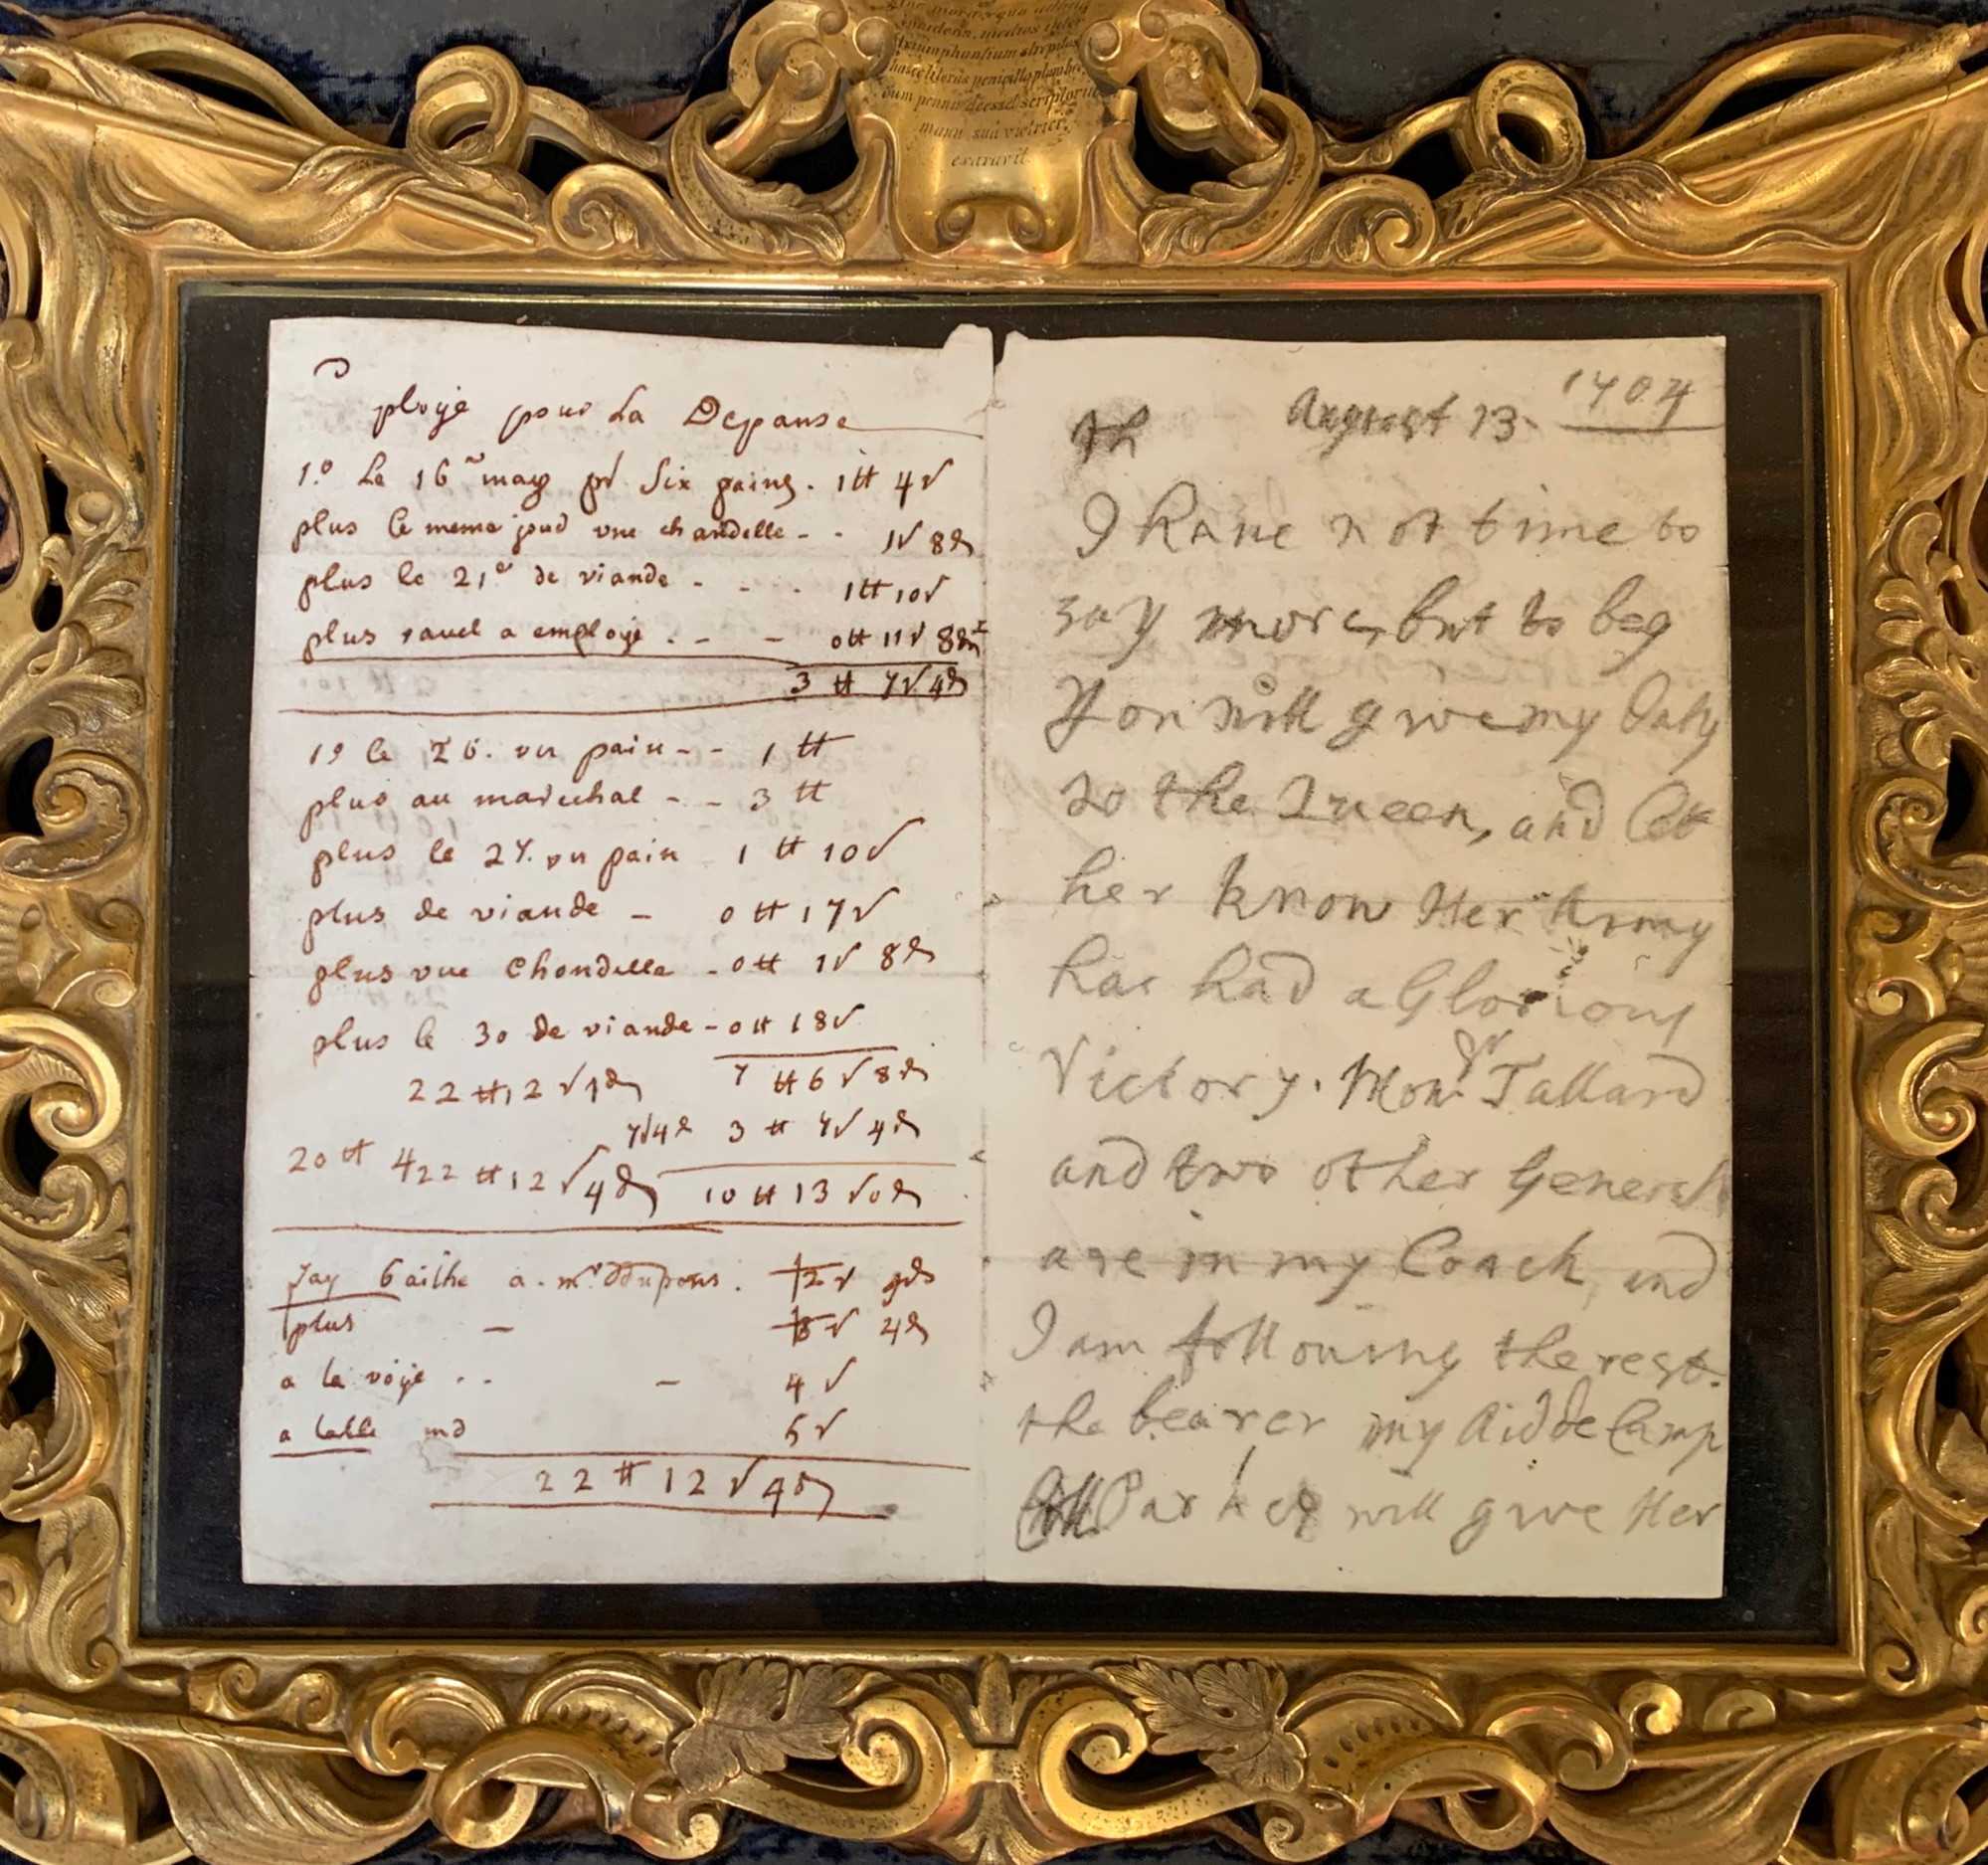 suâdens, medios inter
triumphantium strepitus
hasce literas penicillo plumbeo,
dum penna deesset scriptoria
manu suâ victrici
exaravit.
ploÿe pour La Depanse
1.º Le 16 may pr Six pains. 1 tt 4 s
plus le meme jour vne chandelle - - 1 s 8 d
plus le 21e de viande - - - 1 tt 10 s
plus ravel a employé . - - 0 tt 11 s 8 d
3 tt 7 s 4 d
1º le 26. vn pain - - 1 tt
plus au marechal - - 3 tt
plus le 27. vn pain 1 tt 10 s
plus de viande - 0 tt 17 s
plus vne Chondelle - 0 tt 1 s 8 d
plus le 30 de viande - 0 tt 18 s
22 tt 12 s 4 d 7 tt 6 s 8 d
7 s 4 d 3 tt 7 s 4 d
20 tt 4 22 tt 12 s 4 d 10 tt 13 s 0 d
Jay bailhe a. mr
plus - 4 d
a la voÿe . . - 4 s
a table 5 s
22 tt 12 s 4 d
August 13. 1704
I have not time to
say more, but to beg
You will give my Duty
to the Queen, and let
her know Her Army
has had a Glorious
Victory. Monsr Tallard
and two other Generals
are in my Coach, and
I am following the rest.
the bearer my Aid de Camp
Coll Parker will give Her